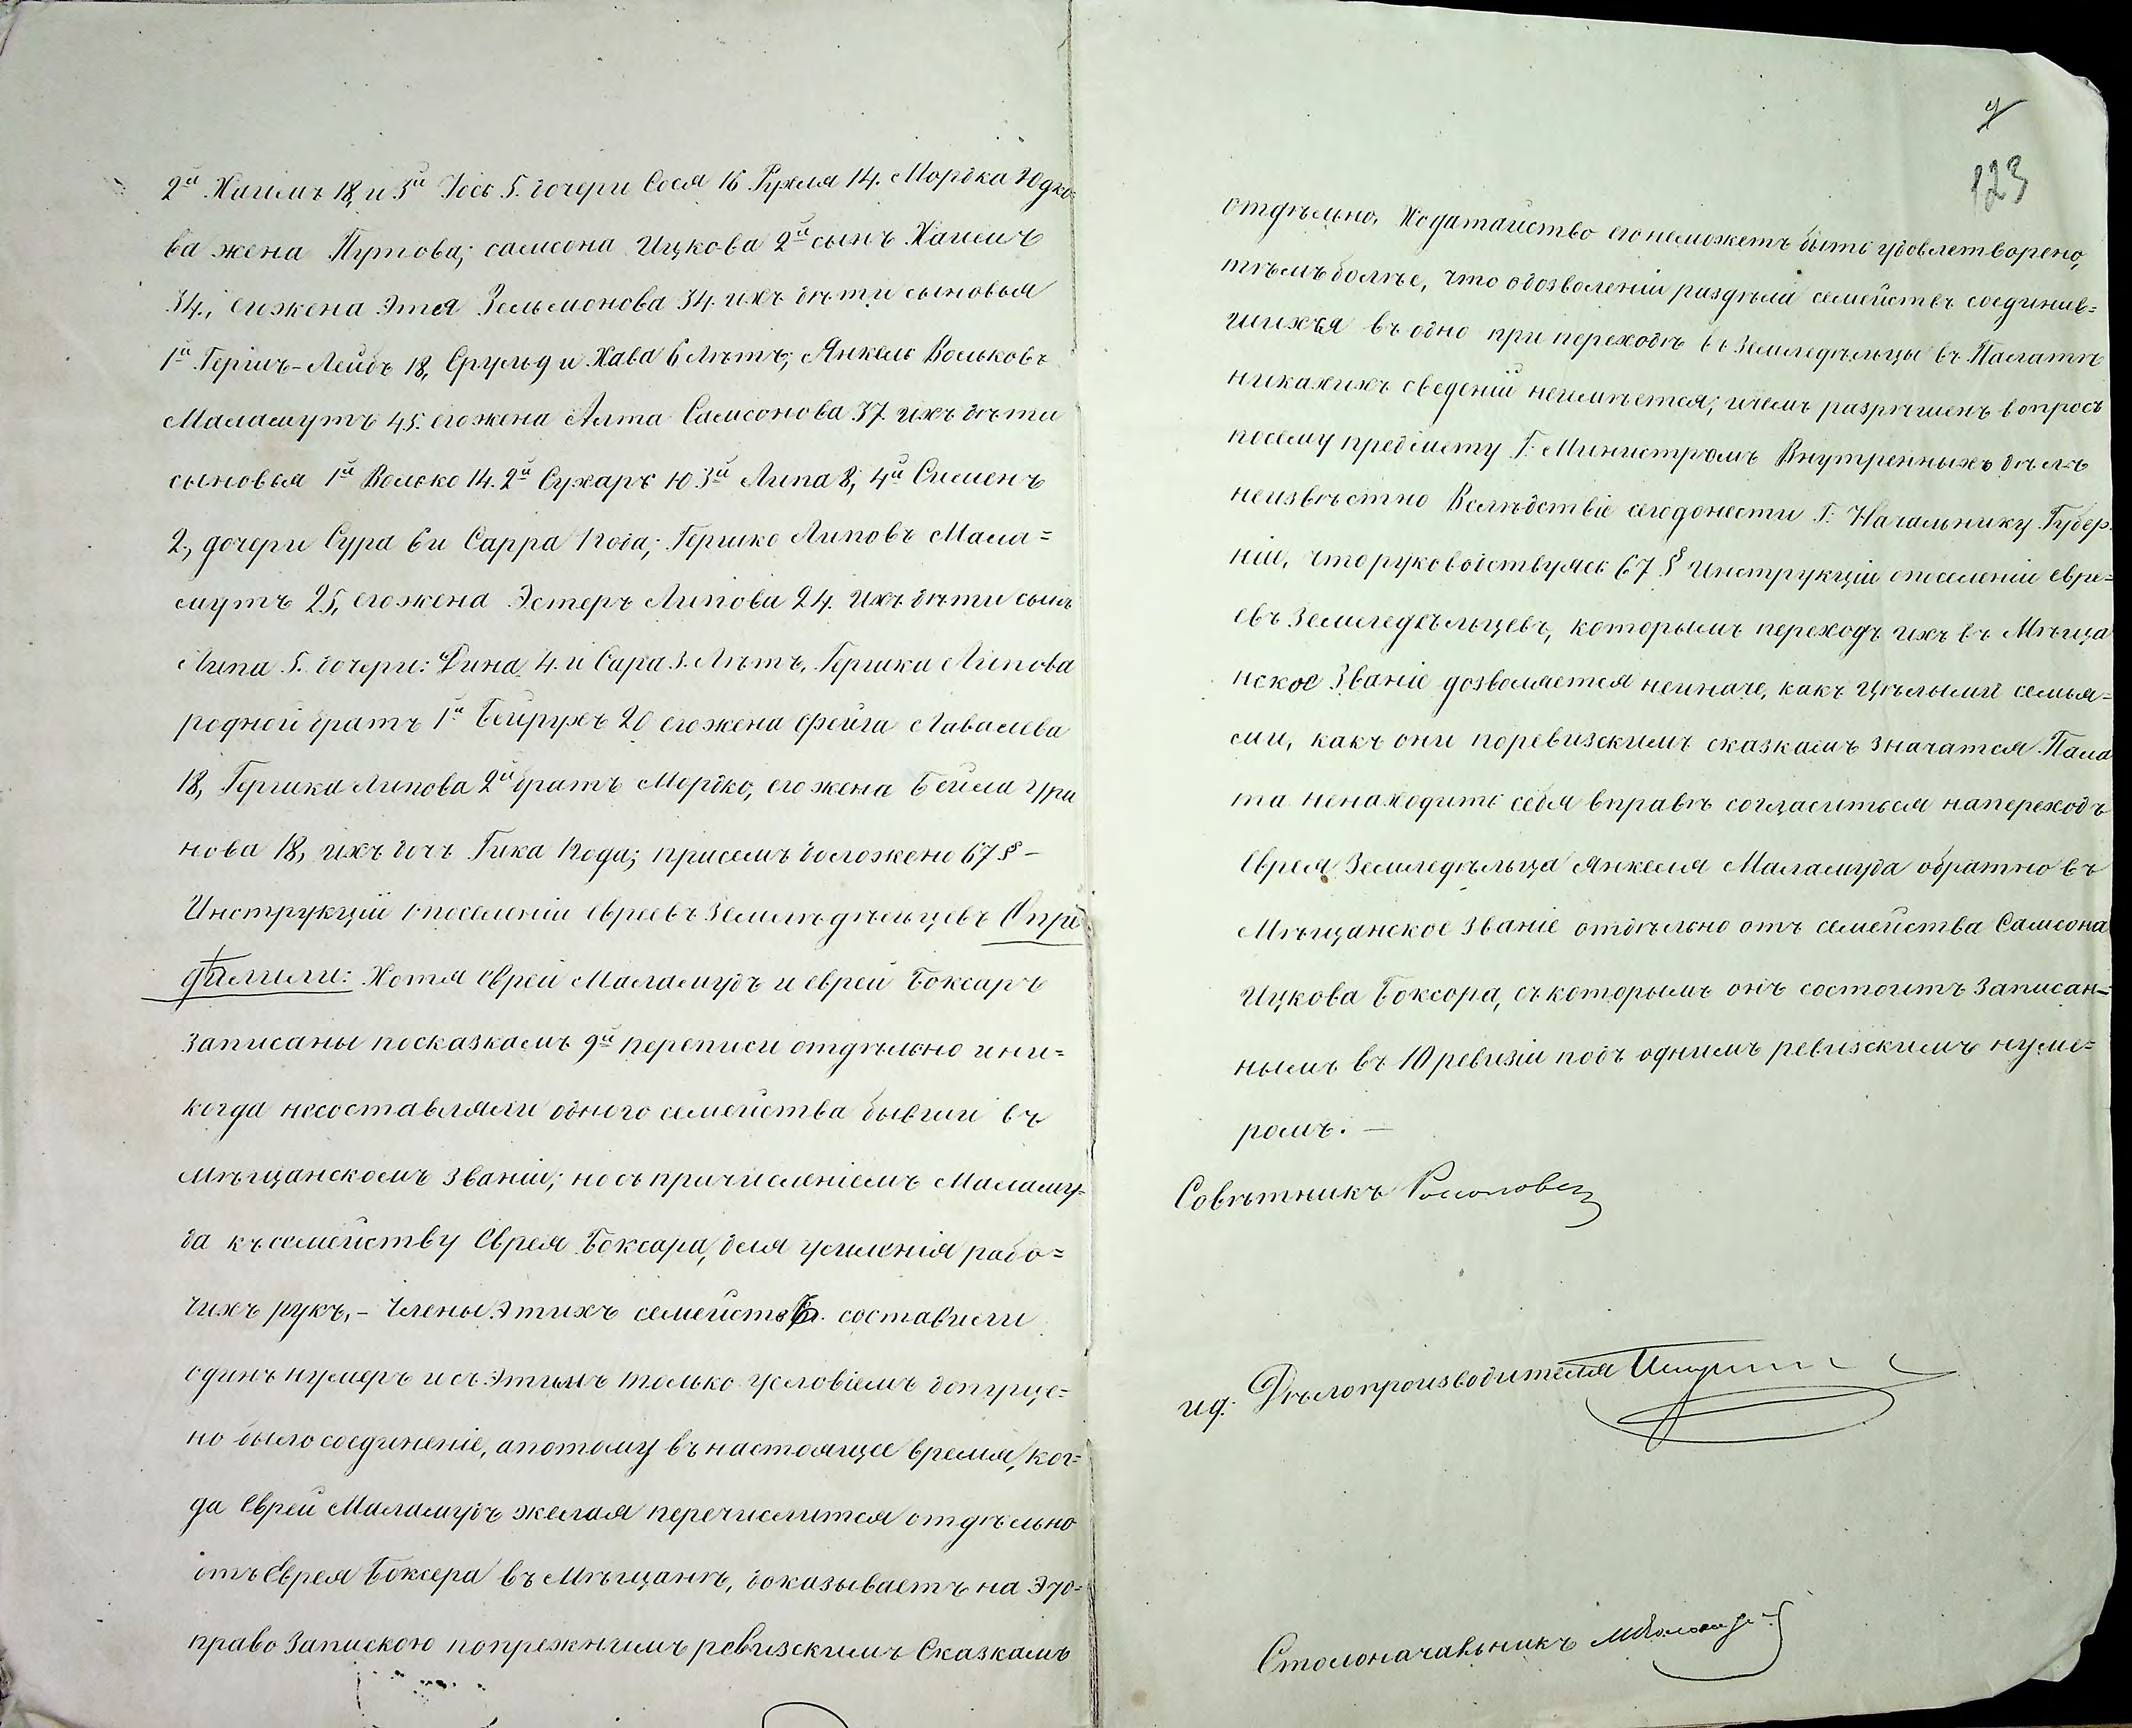 2й Хаимъ 18, и 3й Іось 5. дочери Сося 16 Рухля 14. Мордка Юдко-
ва жена Путова; самсона Ицкова 2й сынъ Хаимъ
34., его жена Этя Зельмонова 34. ихъ дѣти сыновья
1й Гершъ-Лейбъ 18, Срульд и Хава 6 лѣтъ; Янкель Вольковъ
Маламутъ 45. его жена Алта Самсонова 37. ихъ дѣти
сыновья 1й Волько 14. 2й Сухаръ 10 3й Липа 8, 4й Сименъ
2, дочери Сура 6 и Сарра 1 года; Гершко Липовъ Мала=
мутъ 25, его жена Эстеръ Липова 24. ихъ дѣти сынъ
Липа 5. дочери: Дина 4. и Сара 3. лѣтъ, Гершки Липова
родной братъ 1й Бейрухъ 20 его жена Фейга
18, Гершка Липова 2й братъ Мордко, его жена Бейла Ури
нова 18, ихъ дочь Гика 1 года; присемъ доложено 67 §-
Инструкціи о поселеніи евреевъ Земледѣльцевъ Опре
дѣлили: Хотя еврей Маламудъ и еврей Боксаръ
записаны посказкамъ 9й переписи отдѣльно и ни=
когда несоставляли одного семейства бывши въ
Мѣщанскомъ званіи; но съ причисленіемъ Маламу-
да къ семейству Еврея Боксара, для усиленія рабо=
чихъ рукъ,- Члены этихъ семействъ составили
одинъ нумеръ и съ этимъ только условіемъ допуще=
но было соединеніе, а потому въ настоящее время, ког=
да еврей Маламудъ желая перечислится отдѣльно
отъ Еврея Боксера въ Мѣщане, доказываетъ на это-
право Запискою попрежнимъ ревизскимъ Сказкамъ
123
отдѣльно, Ходатайство его неможетъ быть удовлетворено,
тѣмъ болѣе, что о дозволеніи раздѣла семействъ соединив=
шихся въ одно при переходѣ въ Земледѣльцы въ Палатѣ
никакихъ сведеній неимѣется; и чемъ разрѣшенъ вопросъ
посему предмету Г. Министромъ Внутреннихъ дѣлъ
неизвѣстно Вслѣдствіе сего донести Г. Начальнику Губер
ніи, что руководствуясь 67 § инструкціи о поселеніи евре=
евъ Земледѣльцевъ, которымъ переходъ ихъ въ Мѣща
нское Званіе дозволяется неиначе, какъ цѣлыми семья=
ми, какъ они поревизскимъ сказкамъ значатся Пала
та ненаходитъ себя вправѣ согласиться напереходъ
Еврея Земледѣльца Янкеля Маламуда обратно въ
Мѣщанское Званіе отдѣльно отъ семейства Самсона
Ицкова Боксора, съ которымъ онъ состоитъ записан=
нымъ въ 10 ревизіи подъ однимъ ревизскимъ нуме=
ромъ. —
Совѣтникъ
ид. Дѣлопроизводителя
Столоначальникъ